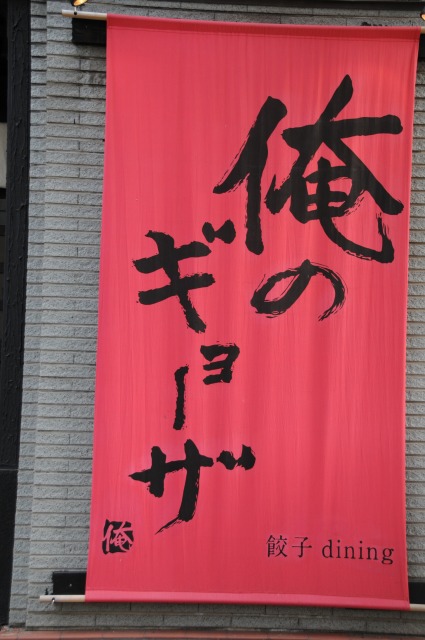 俺の
ギョーザ
俺
餃子 dining